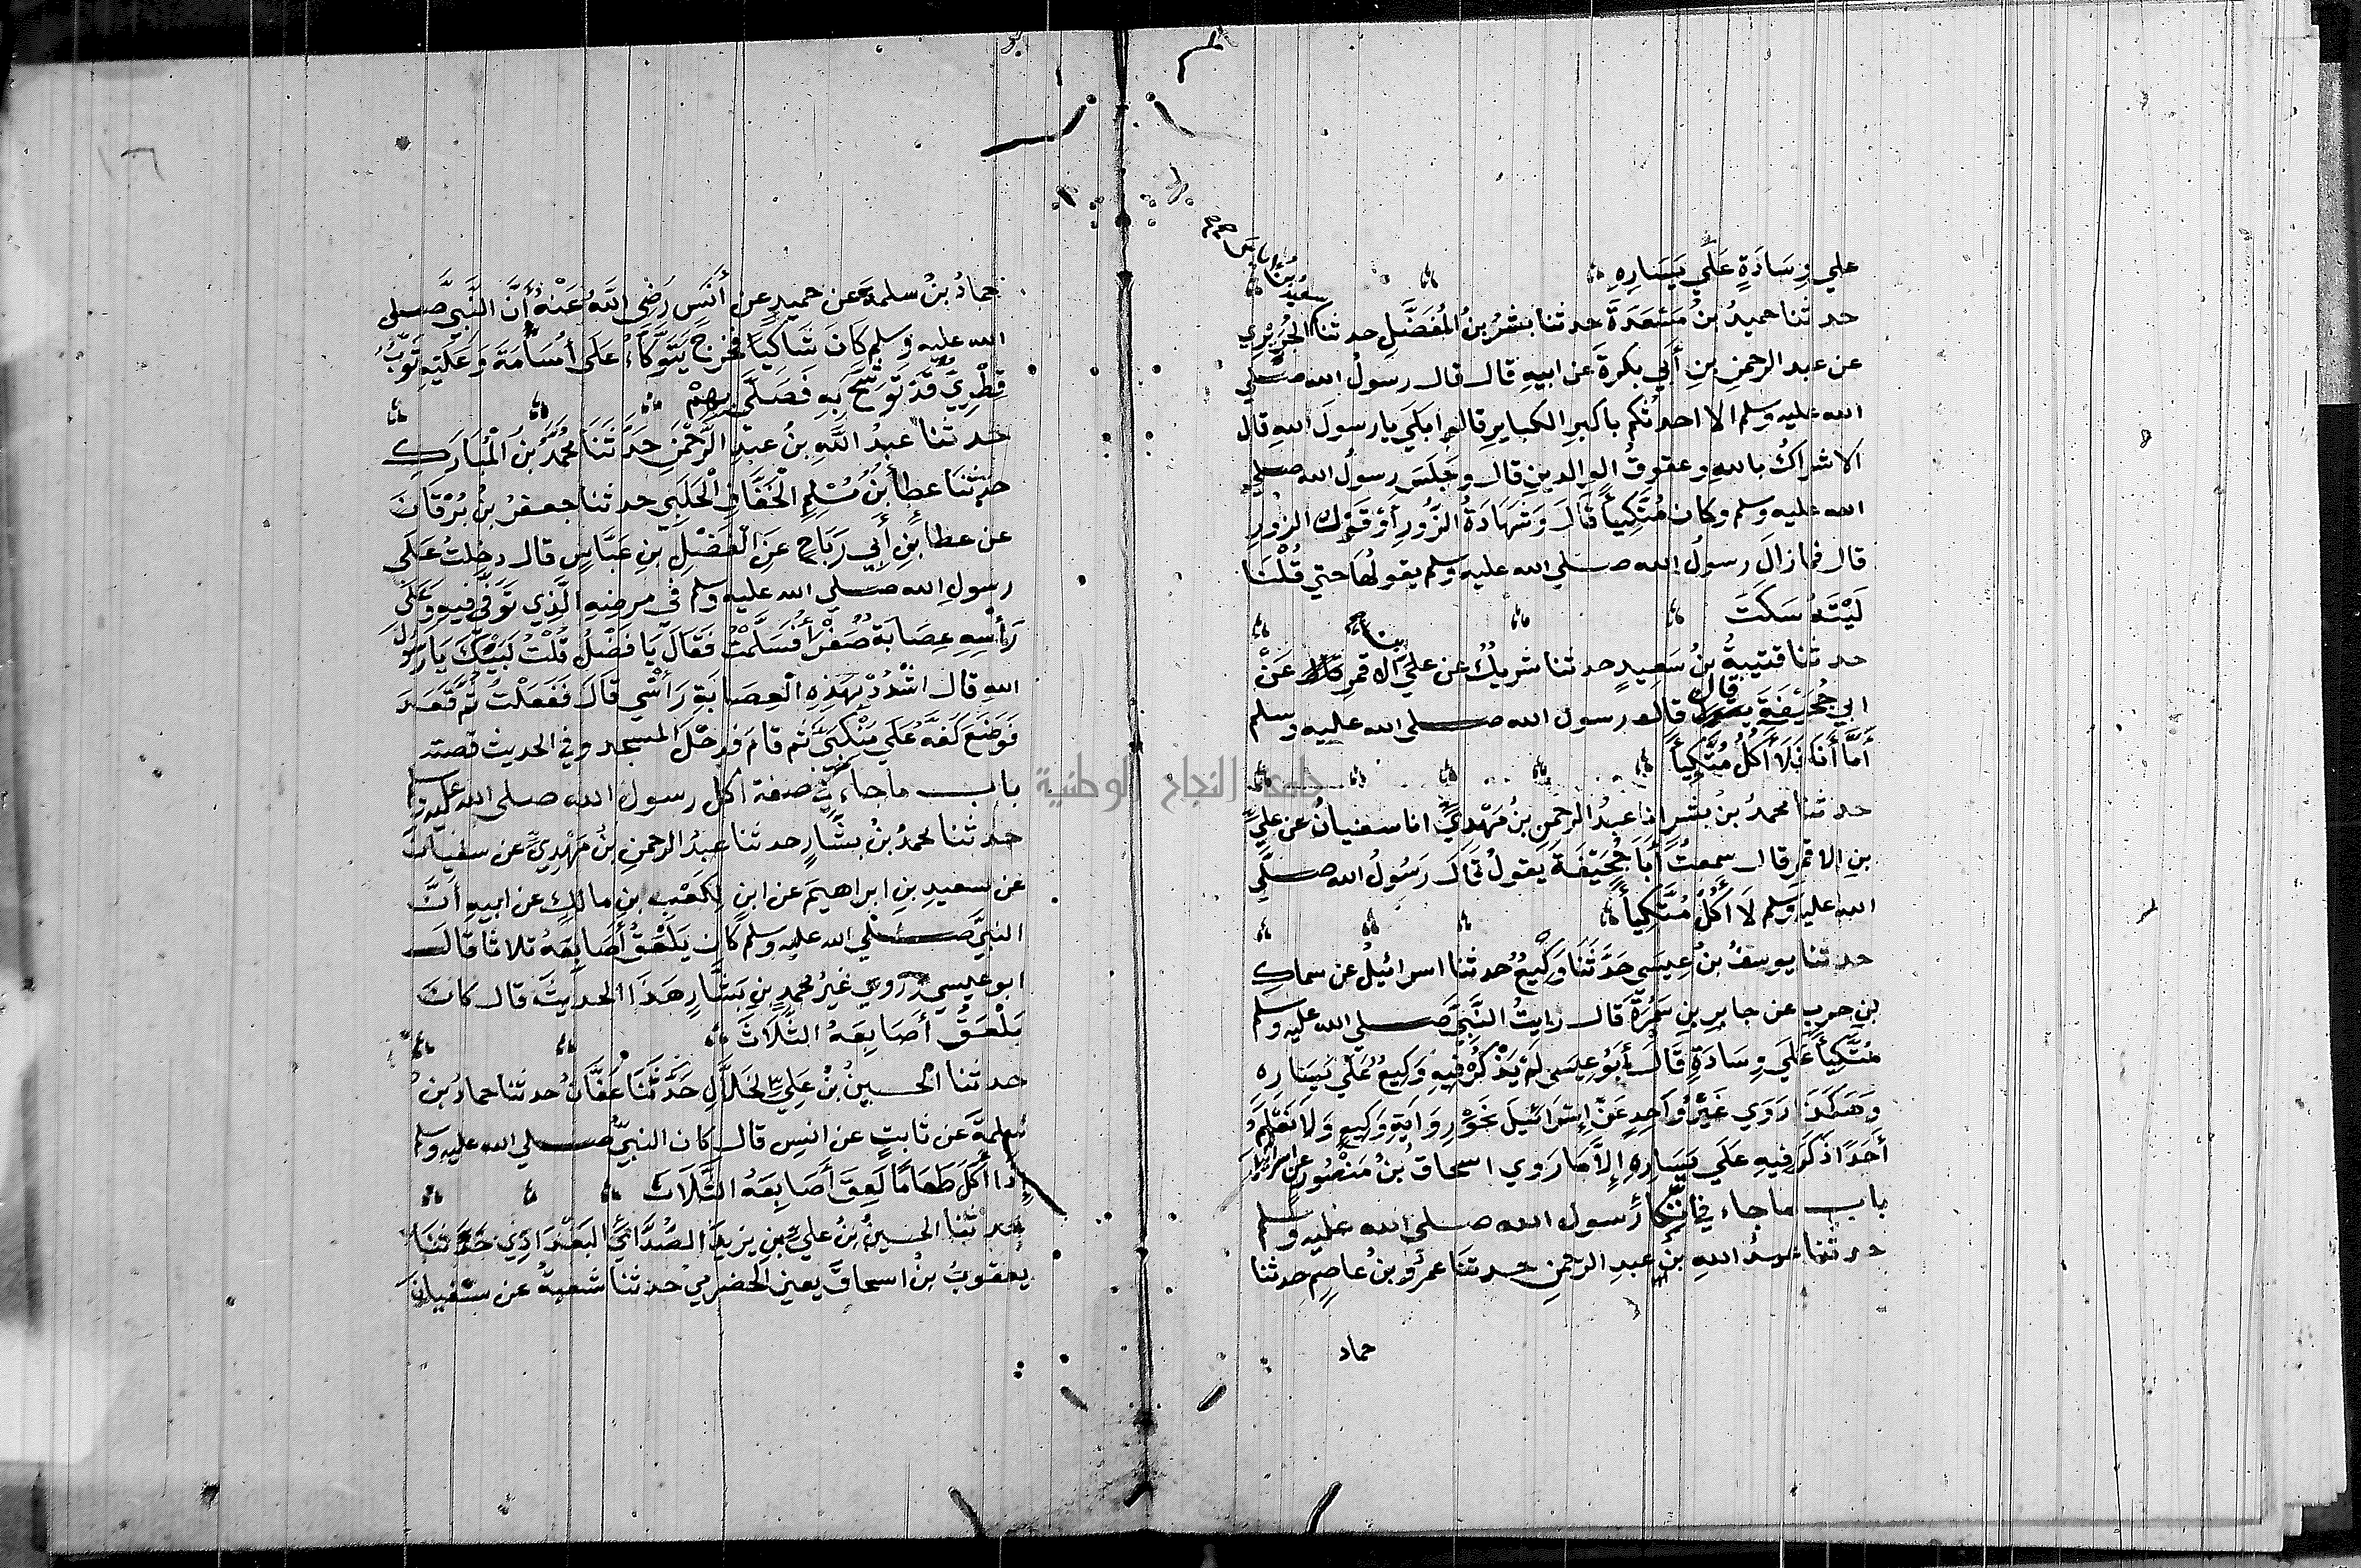 علي وِسَادَةٍ عَلَي يَسَارِهِ
حدثنا حميدُ بنُ مَسْعَدَةَ حدثنا بشرُ بنُ المُفَضَّلِ حدثنا سعيدُ بنُ اياس الجُرَيْرِي
عن عبد الرحمنِ بنِ أَبي بكرةَ عن ابيهِ قال قال رسولُ الله صلي
الله عليه وسلم الا احدثُكم باكبرِ الكبايرِ قالوا بَلَي يا رسولَ اللهِ قال
الاشراكُ باللهِ وعقوقُ الوالدينِ قال وجَلَسَ رسولُ الله صلي
الله عليه وسلم وكان مُتَّكِيأً قَالَ وَشَهَادَةُ الزُّورِ أَوْ قَوْلُ الزورِ
قال فما زالَ رسولُ الله صلي الله عليه وسلم يقولُهَا حتي قُلْنَا
لَيْتَهُ سَكَتَ
حدثنا قتيبةُ بنُ سَعِيدٍ حدثنا شريكٌ عن عليِّ بن الاقمرِ عَنْ
ابي جُحَيْفَةَ قال قال رسول الله صلى الله عليه وسلم
أَمَّا أَنَا فَلَا أَكُلُ مُتَّكِيأً
حدثنا محمدُ بنُ بشارٍ انا عبدُ الرحمنِ بنُ مَهْدِيٍّ انا سفيانُ عن عليِّ
بنِ الاقمرِ قال سمعتُ أَبَا جُحَيْفَةَ يقولُ قَالَ رَسُولُ الله صلَّي
الله عليه وسلم لَا أَكُلُ مُتَّكِيأً
حدثنا يوسفُ بنُ عِيسَي حَدَّثَنَا وَكِيعٌ حدثنا اسرائيلُ عن سماكِ
بنِ حربٍ عن جابرِ بنِ سَمُرَةَ قَال رايتُ النَّبِيَّ صلي الله عليه وسلم
مُتَّكِيأً عَلَي وِسَادَةٍ قَالَ أَبُو عِيسَى لَمْ يَذْكُرْ فِيهِ وَكِيعٌ عَلَي يَسَارِهِ
وَهَكَذَا رَوَي غَيْرُ وَاحِدٍ عَنْ إِسْرَائِيلَ نَحْوَ رِوَايَةِ وَكِيعٍ وَلَا نَعْلَمُ
أَحَدًا ذَكَرَ فِيهِ عَلَي يَسَارِهِ إِلَّا مَا رَوَي اسحاقُ بنُ مَنْصُورٍ عن اسرائيل
باب ما جاء في اتكاءِ رسول الله صلى الله عليه وسلم
حدثنا عبدُ اللهِ بنُ عبدِ الرحمنِ حدثنَا عمرُو بنُ عاصِمٍ حدثنا
حماد
حمادُ بنُ سلمةَ عن حميدٍ عن أَنَسٍ رَضِيَ اللَّهُ عَنْهُ أَنَّ النَّبِيَّ صلى
الله عليه وسلم كَانَ شَاكِيًا فَخَرَجَ يَتَوَكَّأُ عَلَى أُسَامَةَ وَعَلَيْهِ ثَوْبٌ
قِطْرِيٌّ قَدْ تَوَشَّحَ بِهِ فَصَلَّى بِهِمْ
حدثنا عبدُ اللَّهِ بنُ عبدِ الرَّحْمَنِ حَدَّثَنَا مُحَمَّدُ بنُ الْمُبَارَكِ
حدثنَا عطأُ بْنُ مُسْلِمٍ الْخَفَّافِ الْحَلَبِي حدثنا جعفرُ بنُ بُرْقَانَ
عن عطا بْنِ أَبِي رَبَاحٍ عَنِ الْفَضْلِ بنِ عَبَّاسٍ قال دخلتُ عَلَى
رسولِ الله صلي الله عليه وسلم في مرضِهِ الَّذِي تُوفِّيَ فِيهِ وَعَلَي
رَأْسِهِ عِصَابَةٌ صُفْرَأُ فَسَلَّمْتُ فَقَالَ يَا فَضْلُ قُلْتُ لَبَيْكَ يَا رَسُولَ
اللهِ قال اشْدُدْ بِهَذِهِ الْعِصَابَةِ رَأْسِي قَالَ فَفَعَلْتُ ثُمَّ قَعَدَ
فَوَضَعَ كَفَّهُ عَلَي مَنْكِبَيَّ ثم قامَ فدخَلَ المسجد وفي الحديث قصتد
باب ما جاء في صفة اكل رسول الله صلى الله عليه وسلم
حدثنا محمدُ بنُ بشَّارٍ حدثنا عبدُ الرحمنِ بنُ مَهْدِيٍّ عن سفيانَ
عن سعيدِ بنِ ابراهيمَ عن ابنٍ لِكَعْبِ بنِ مالكٍ عن ابيهِ أَنَّ
النبيَّ صلي الله عليه وسلم كَان يَلْعَقُ أَصَابِعَهُ ثلاثًا قَال
ابو عيسي روي غيرُ محمدِ بنِ بَشَّارٍ هَذَا الحديثَ قال كَانَ
يَلْعَقُ أَصَابِعَهُ الثَّلَاثَ
حدثنا الحسينُ بنُ عَلِيٍّ الخَلَّالِ حَدَّثَنَا عَفَّانُ حدثنا حمادُ بنُ
سلمةَ عن ثابتٍ عن انَسٍ قال كان النبيُّ صلي الله عليه وسلم
إِذَا أَكَلَ طَعَامًا لَعِقَ أَصَابِعَهُ الثَّلَاثَ
حدثنا الحسينُ بنُ عليِّ بنِ يزيدَ الصُّدَّائيُّ البَغْدَاذِي حَدَّثنَا
يعقوبُ بنُ اسحاقَ يعني الحضرميِّ حدثنا شعبةُ عن سُفْيانَ
١٢٦
جامعة النجاح الوطنية